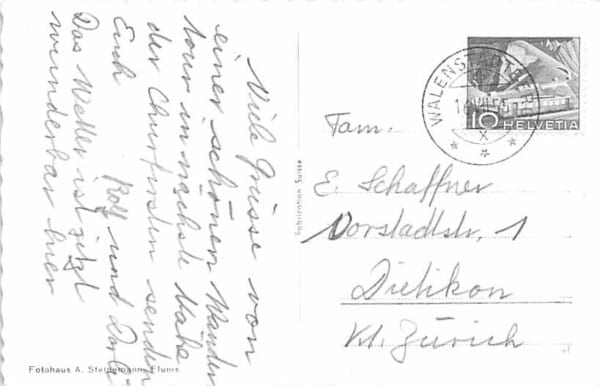 Viele Grüsse von
einer schönen Wander
tour in nächste Nähe
der Churfirsten senden
Euch Rolf und
Das Wetter ist jetzt
wunderbar hier
WALENSTADTBERG
VII.55
10 HELVETIA
Fam.
E. Schaffner
Vorstadtstr. 1
Dietikon
Kt. Zürich
Fabrication Suisse
Fotohaus A. Steinemann, Flums